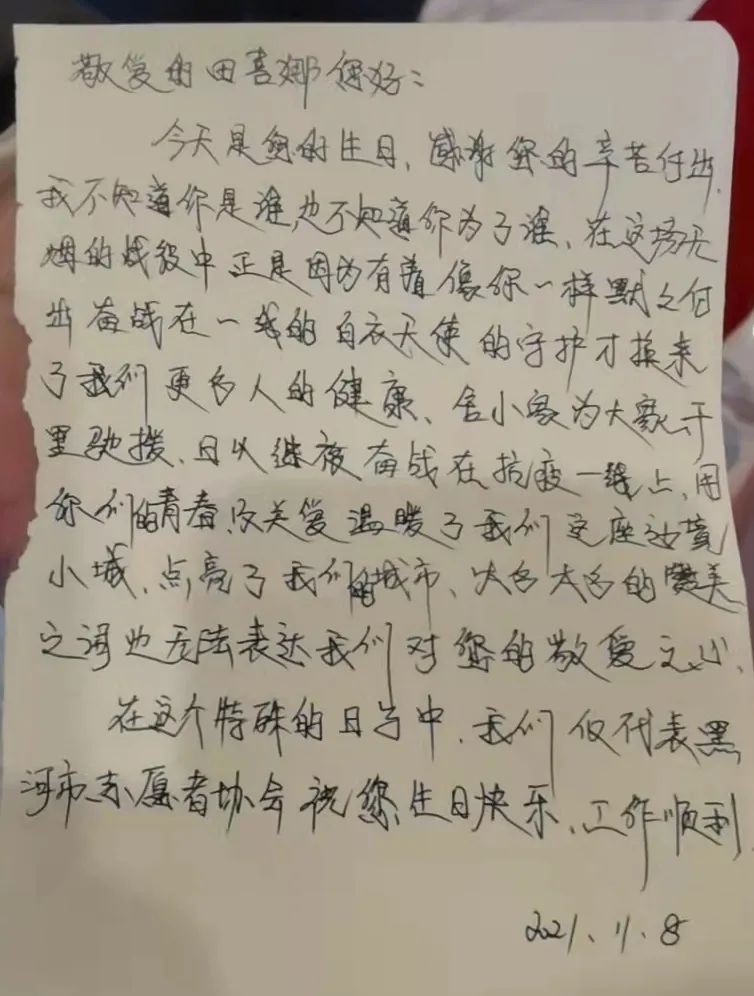 敬爱的田喜娜你好：
今天是您的生日，感谢您的辛苦付出，
我不知道你是谁，也不知道你为了谁、在这场无
烟的战役中正是因为有着像你一样默々付
出奋战在一线的白衣天使的守护才换来
了我们更多人的健康、舍小家为大家千
里驰援、日以继夜奋战在抗疫一线上，用
你们的青春及关爱温暖了我们这座边境
小城、点亮了我们的城市、太多太多的赞美
之词也无法表达我们对您的敬爱之心、
在这个特殊的日子中，我们仅代表黑
河市志愿者协会祝您生日快乐、工作顺利
2021、11、8